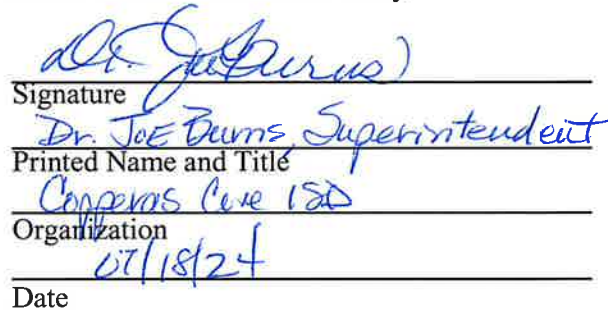 Dr. Joe Burns
Signature
Dr. Joe Burns, Superintendent
Printed Name and Title
Copperas Cove ISD
Organization
07/18/24
Date